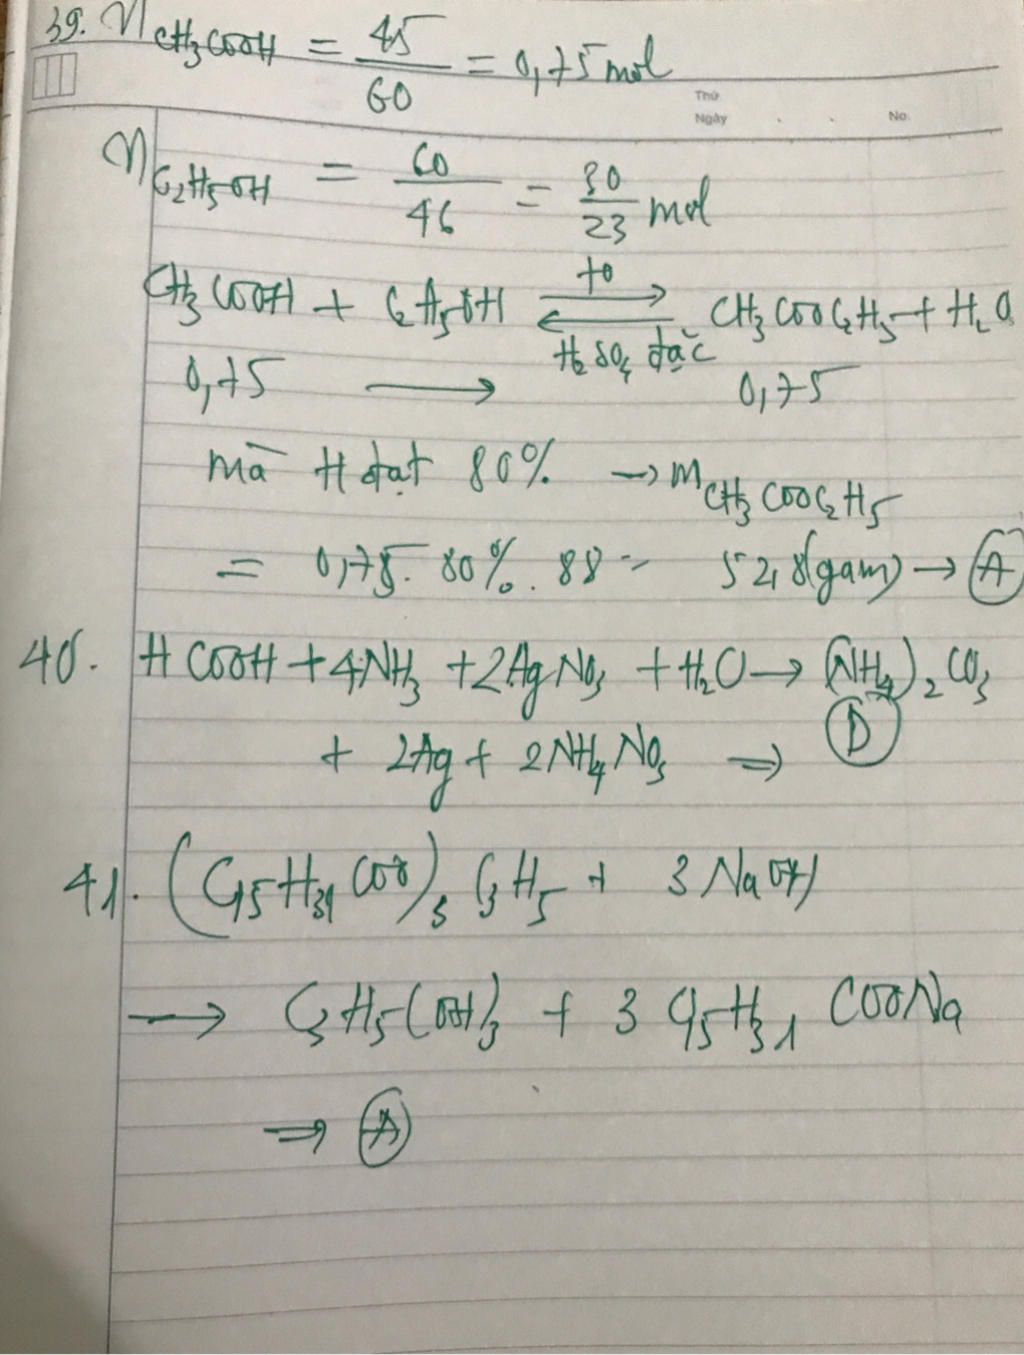 39. n CH3COOH = 45/60 = 0,75 mol
Thứ
Ngày . . No.
n C2H5OH = 60/46 = 30/23 mol
CH3COOH + C2H5OH ⇌ (t°, H2SO4 đặc) CH3COOC2H5 + H2O
0,75 → 0,75
mà H đạt 80% → m CH3COOC2H5
= 0,75. 80%. 88 = 52,8(gam) → A
40. HCOOH + 4NH3 + 2AgNO3 + H2O → (NH4)2CO3
+ 2Ag + 2NH4NO3 ⇒ D
41. (C15H31COO)3C3H5 + 3NaOH
→ C3H5(OH)3 + 3C15H31COONa
⇒ A